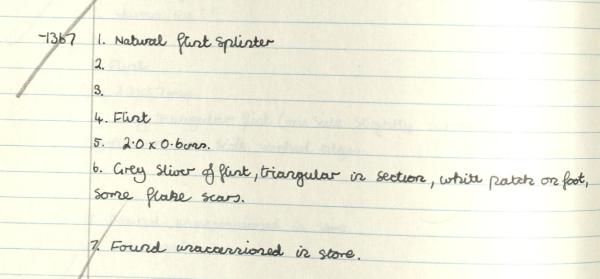 -1367 1. Natural flint splinter
2.
3.
4. Flint
5. 2.0 x 0.6cms.
6. Grey sliver of flint, triangular in section, white patch on foot,
some flake scars.
7. Found unaccessioned in store.